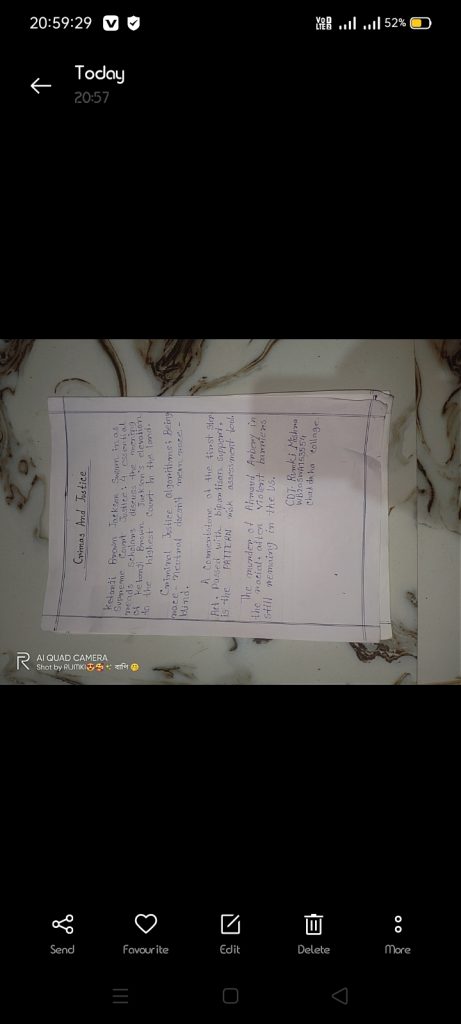 20:59:29
Vo LTE 2
52%
Today
20:57
Crimes And Justice
Ketanji Brown Jackson Sworn in as
Supreme Court Justice: 4 essential
reads scholars discuss the meaning
of Ketanji Brown Jackson's elevation
to the highest Court in the land.
Criminal Justice algorithms: Being
race-neutral doesn't mean race-
blind.
A Cornerstone of the First Step
Act, Passed with bipartisan support,
is the PATTERN risk assessment tool.
The murder of Ahmaud Arbery in
the racial, after violent barriers
still remaining in the US.
CDT. Rumki Mishra
Chaidaha collage
R
AI QUAD CAMERA
Shot by RUMKI😍🥰✨ বাপি 🤭
Send
Favourite
Edit
Delete
More